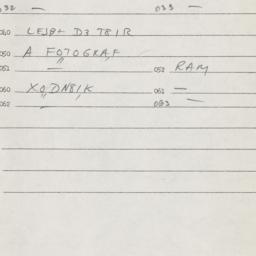 032 — 033 —
040 LEJBT D3 TBIR
050 A FOTOGRAF
051 — 052 RAM
060 XODNBIK 061 —
062 — 063 —